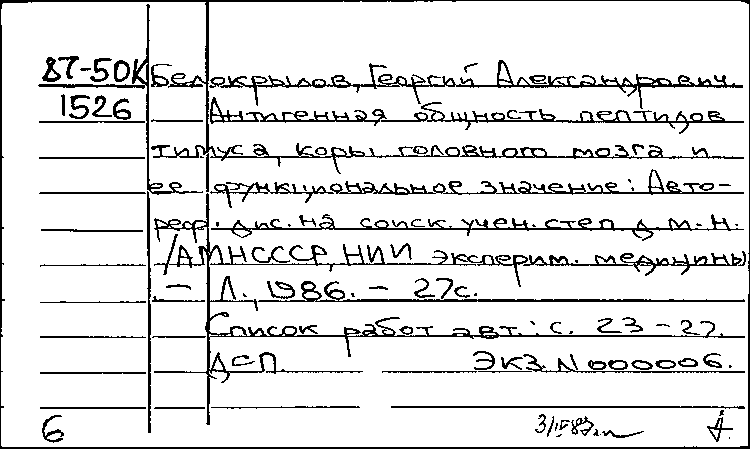 87-50К Белокрылов, Георгий Александрович.
1526 Антигенная общность пептидов
тимуса, коры головного мозга и
ее функциональное значение: Авто-
реф. дис. на соиск. учен. степ. д. м. н.
/АМН СССР, НИИ эксперим. медицины.
- Л., 1986. - 27с.
Список работ авт.: с. 23-27.
ДСП. ЭКЗ. N 000006.
6